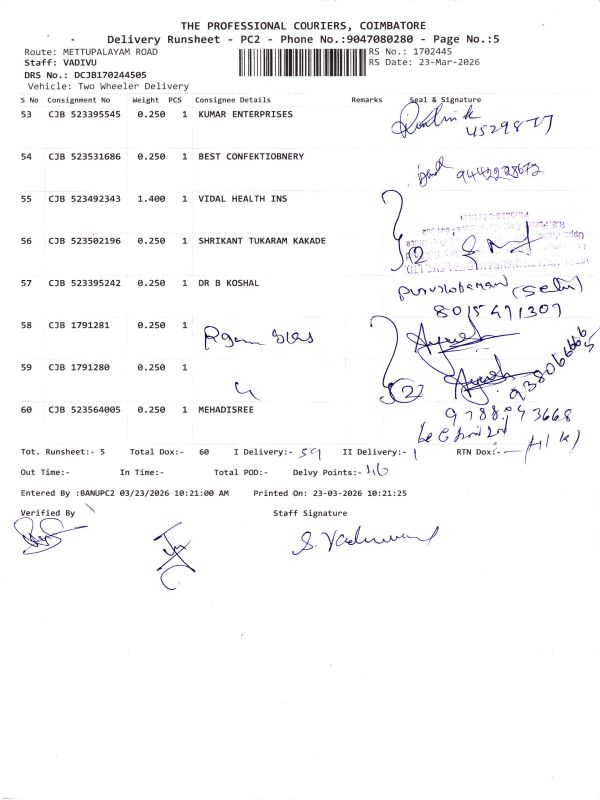 THE PROFESSIONAL COURIERS, COIMBATORE
Delivery Runsheet - PC2 - Phone No.:9047080280 - Page No.:5
Route: METTUPALAYAM ROAD
RS No.: 1702445
Staff: VADIVU
RS Date: 23-Mar-2026
DRS No.: DCJB170244505
Vehicle: Two Wheeler Delivery
S No Consignment No Weight PCS Consignee Details Remarks Seal & Signature
53 CJB 523395545 0.250 1 KUMAR ENTERPRISES
4529877
54 CJB 523531686 0.250 1 BEST CONFEKTIOBNERY
9442228672
55 CJB 523492343 1.400 1 VIDAL HEALTH INS
56 CJB 523502196 0.250 1 SHRIKANT TUKARAM KAKADE
2
57 CJB 523395242 0.250 1 DR B KOSHAL
8015471307
58 CJB 1791281 0.250 1
59 CJB 1791280 0.250 1
2
9380666665
60 CJB 523564005 0.250 1 MEHADISREE
Tot. Runsheet:- 5 Total Dox:- 60 I Delivery:- 59 II Delivery:- 1 RTN Dox:-
Out Time:- In Time:- Total POD:- Delvy Points:- 46
Entered By :BANUPC2 03/23/2026 10:21:00 AM Printed On: 23-03-2026 10:21:25
Verified By Staff Signature